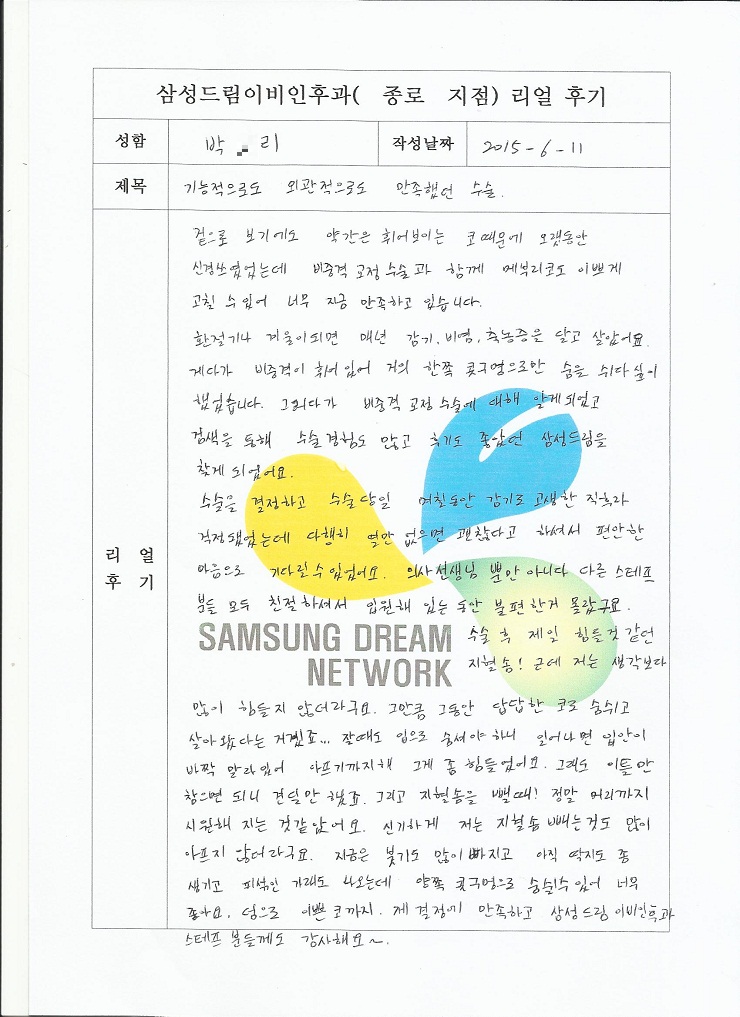 삼성드림이비인후과( 종로 지점) 리얼 후기
성함 박 리 작성날짜 2015-6-11
제목 기능적으로도 외관적으로도 만족했던 수술.
겉으로 보기에도 약간은 휘어보이는 코때문에 오랫동안
신경쓰였었는데 비중격 교정수술과 함께 메부리코도 이쁘게
고칠 수 있어 너무 지금 만족하고 있습니다.
환절기나 겨울이되면 매년 감기, 비염, 축농증을 달고 살았어요.
게다가 비중격이 휘어있어 거의 한쪽 콧구멍으로만 숨을 쉬다싶이
했었습니다. 그러다가 비중격 교정수술에 대해 알게되었고
검색을 통해 수술경험도 많고 후기도 좋았던 삼성드림을
찾게 되었어요.
수술을 결정하고 수술당일 며칠동안 감기로 고생한 직후라
걱정됐었는데 다행히 열만 없으면 괜찮다고 하셔서 편안한
마음으로 기다릴수있었어요. 의사선생님 뿐만 아니라 다른 스테프
분들 모두 친절하셔서 입원해 있는 동안 불편한거 몰랐구요.
수술 후 제일 힘들것 같던
지혈솜! 근데 저는 생각보다
리 얼
후 기
SAMSUNG DREAM
NETWORK
많이 힘들지 않더라구요. 그만큼 그동안 답답한 코로 숨쉬고
살아왔다는 거겠죠... 잘때도 입으로 숨셔야하니 일어나면 입안이
바짝 말라있어 아프기까지해 그게 좀 힘들었어요. 그래도 이틀만
참으면 되니 견딜만 했죠. 그리고 지혈솜을 뺄때! 정말 머리까지
시원해 지는 것같았어요. 신기하게 저는 지혈솜 빼는것도 많이
아프지 않더라구요. 지금은 붓기도 많이 빠지고 아직 딱지도 좀
생기고 피섞인 가래도 나오는데 양쪽 콧구멍으로 숨쉴수있어 너무
좋아요. 덤으로 이쁜코까지. 제 결정에 만족하고 삼성드림 이비인후과
스테프 분들께도 감사해요~.